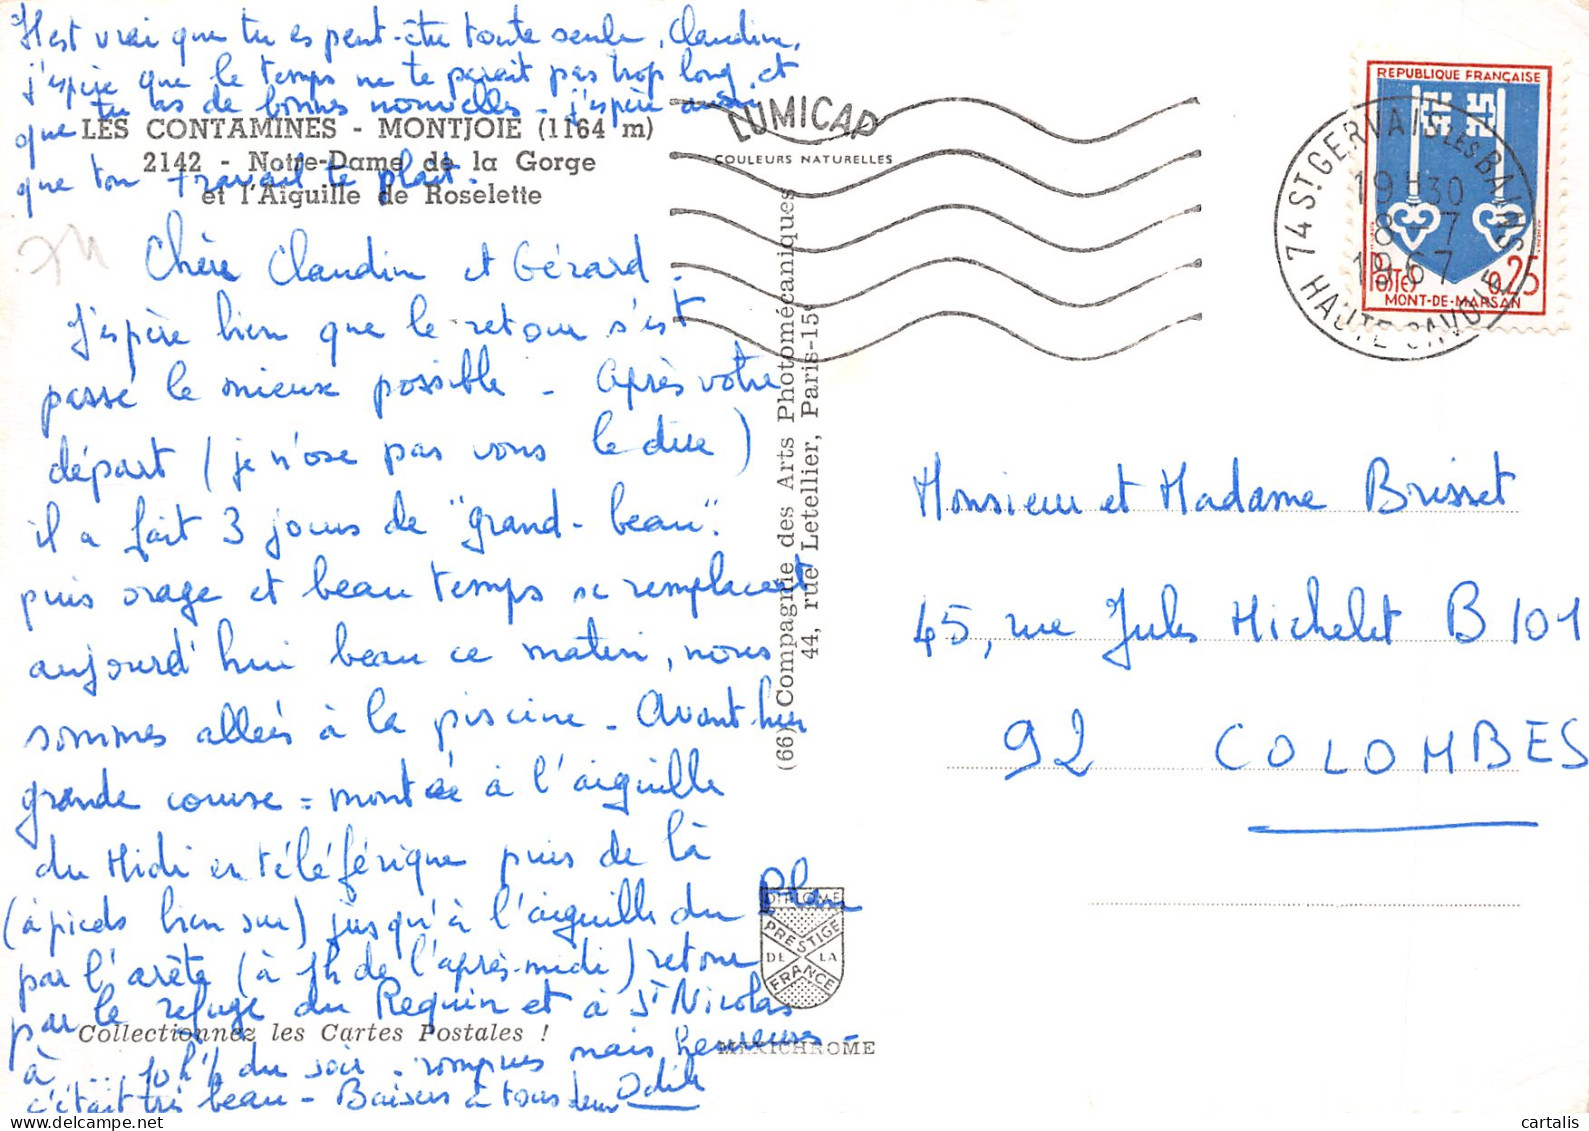 Il est vrai que tu es peut-être toute seule, Claudine,
j'espère que le temps ne te paraît pas trop long, et
que tu as de bonnes nouvelles - j'espère aussi
que ton travail te plait.
LES CONTAMINES - MONTJOIE (1164 m)
2142 - Notre-Dame de la Gorge
et l'Aiguille de Roselette
Chère Claudine et Gérard.
J'espère bien que le retour s'est
passé le mieux possible - Après votre
départ (je n'ose pas vous le dire)
il a fait 3 jours de "grand-beau".
puis orage et beau temps se remplacent
aujourd'hui beau ce matin, nous
sommes allées à la piscine - Avant-hier
grande course = montée à l'aiguille
du Midi en téléférique puis de là
(à pieds bien sur) jusqu'à l'aiguille du Plan
par l'arète (à 1h de l'après-midi) retour
par le refuge du Requin et à St Nicolas
à ... 10h½ du soir - rompues mais heureuses -
c'était très beau - Baisers à tous deux Odile
Collectionnez les Cartes Postales !
LUMICAP
COULEURS NATURELLES
(66) Compagnie des Arts Photomécaniques
44, rue Letellier, Paris-15e
DIPLOME
PRESTIGE
DE LA
FRANCE
MEXICHROME
REPUBLIQUE FRANÇAISE
POSTES
0,25
MONT-DE-MARSAN
74 ST GERVAIS LES BAINS
19H30
8-7
1967
HAUTE SAVOIE
Monsieur et Madame Brisset
45, rue Jules Michelet B 101
92 COLOMBES
cartalis
© www.delcampe.net